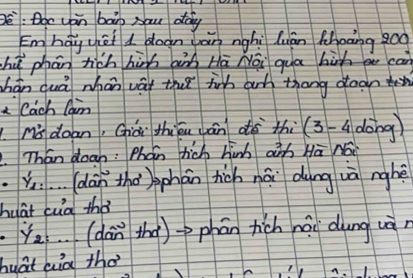 Đề: Đọc văn bản sau đây
Em hãy viết 1 đoạn văn nghị luận khoảng 200
chữ phân tích hình ảnh Hà Nội qua hình cảm
nhận của nhân vật thứ tình anh trong đoạn
* Cách làm
1. Mở đoạn, Giới thiệu vấn đề thi (3-4 dòng)
2. Thân đoạn: Phân tích hình ảnh Hà Nội
• Ý1: ... (dẫn thơ) → phân tích nội dung và nghệ
thuật của thơ
• Ý2: ... (dẫn thơ) → phân tích nội dung và n
thuật của thơ